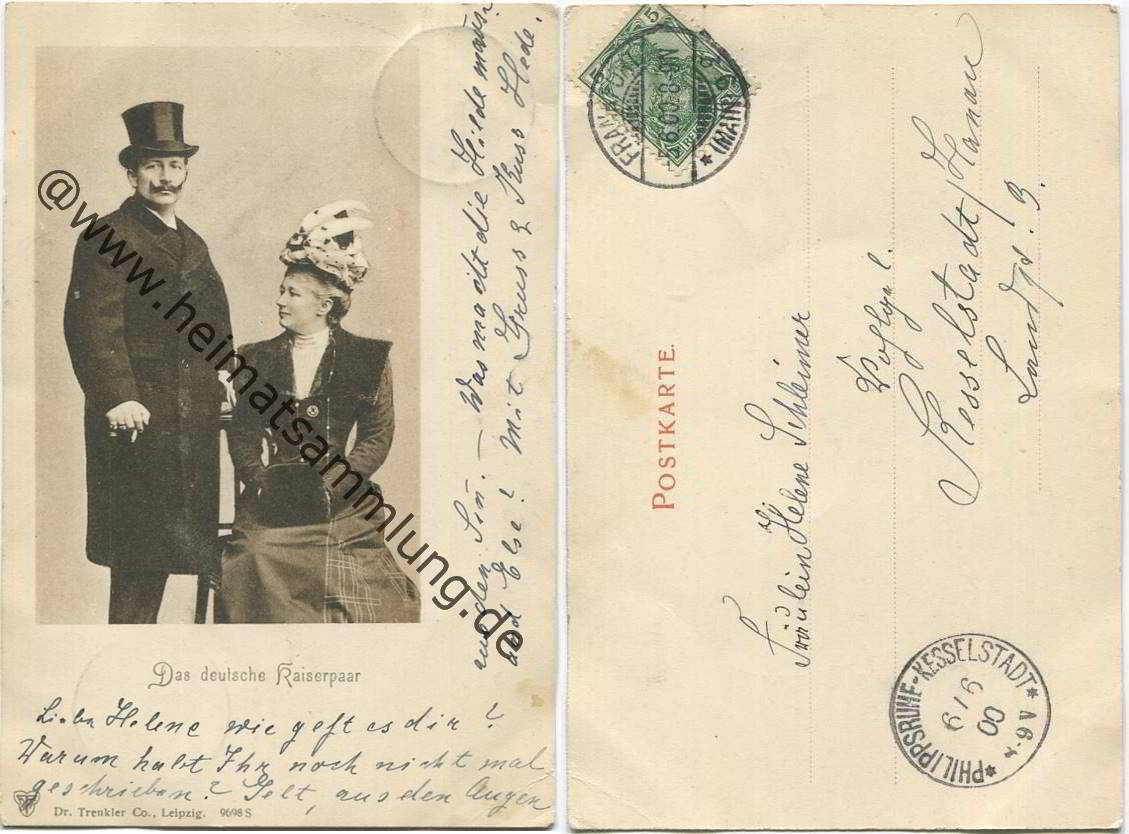 Das deutsche Kaiserpaar
Liebe Helene wie geht es dir?
Warum habt Ihr noch nicht mal
geschrieben? Gelt, aus den Augen
aus den Sin. — Was macht die Hilde
und Else? Mit Gruss & Kuss Hede.
Dr. Trenkler Co., Leipzig. 9698 S
@www.heimatsammlung.de
POSTKARTE.
Fräulein Helene Schleimer
Kesselstadt/Hanau
FRANKFURT
(MAIN) 9
6.00.8-9N
PHILIPPSRUHE-KESSELSTADT
9/6
00